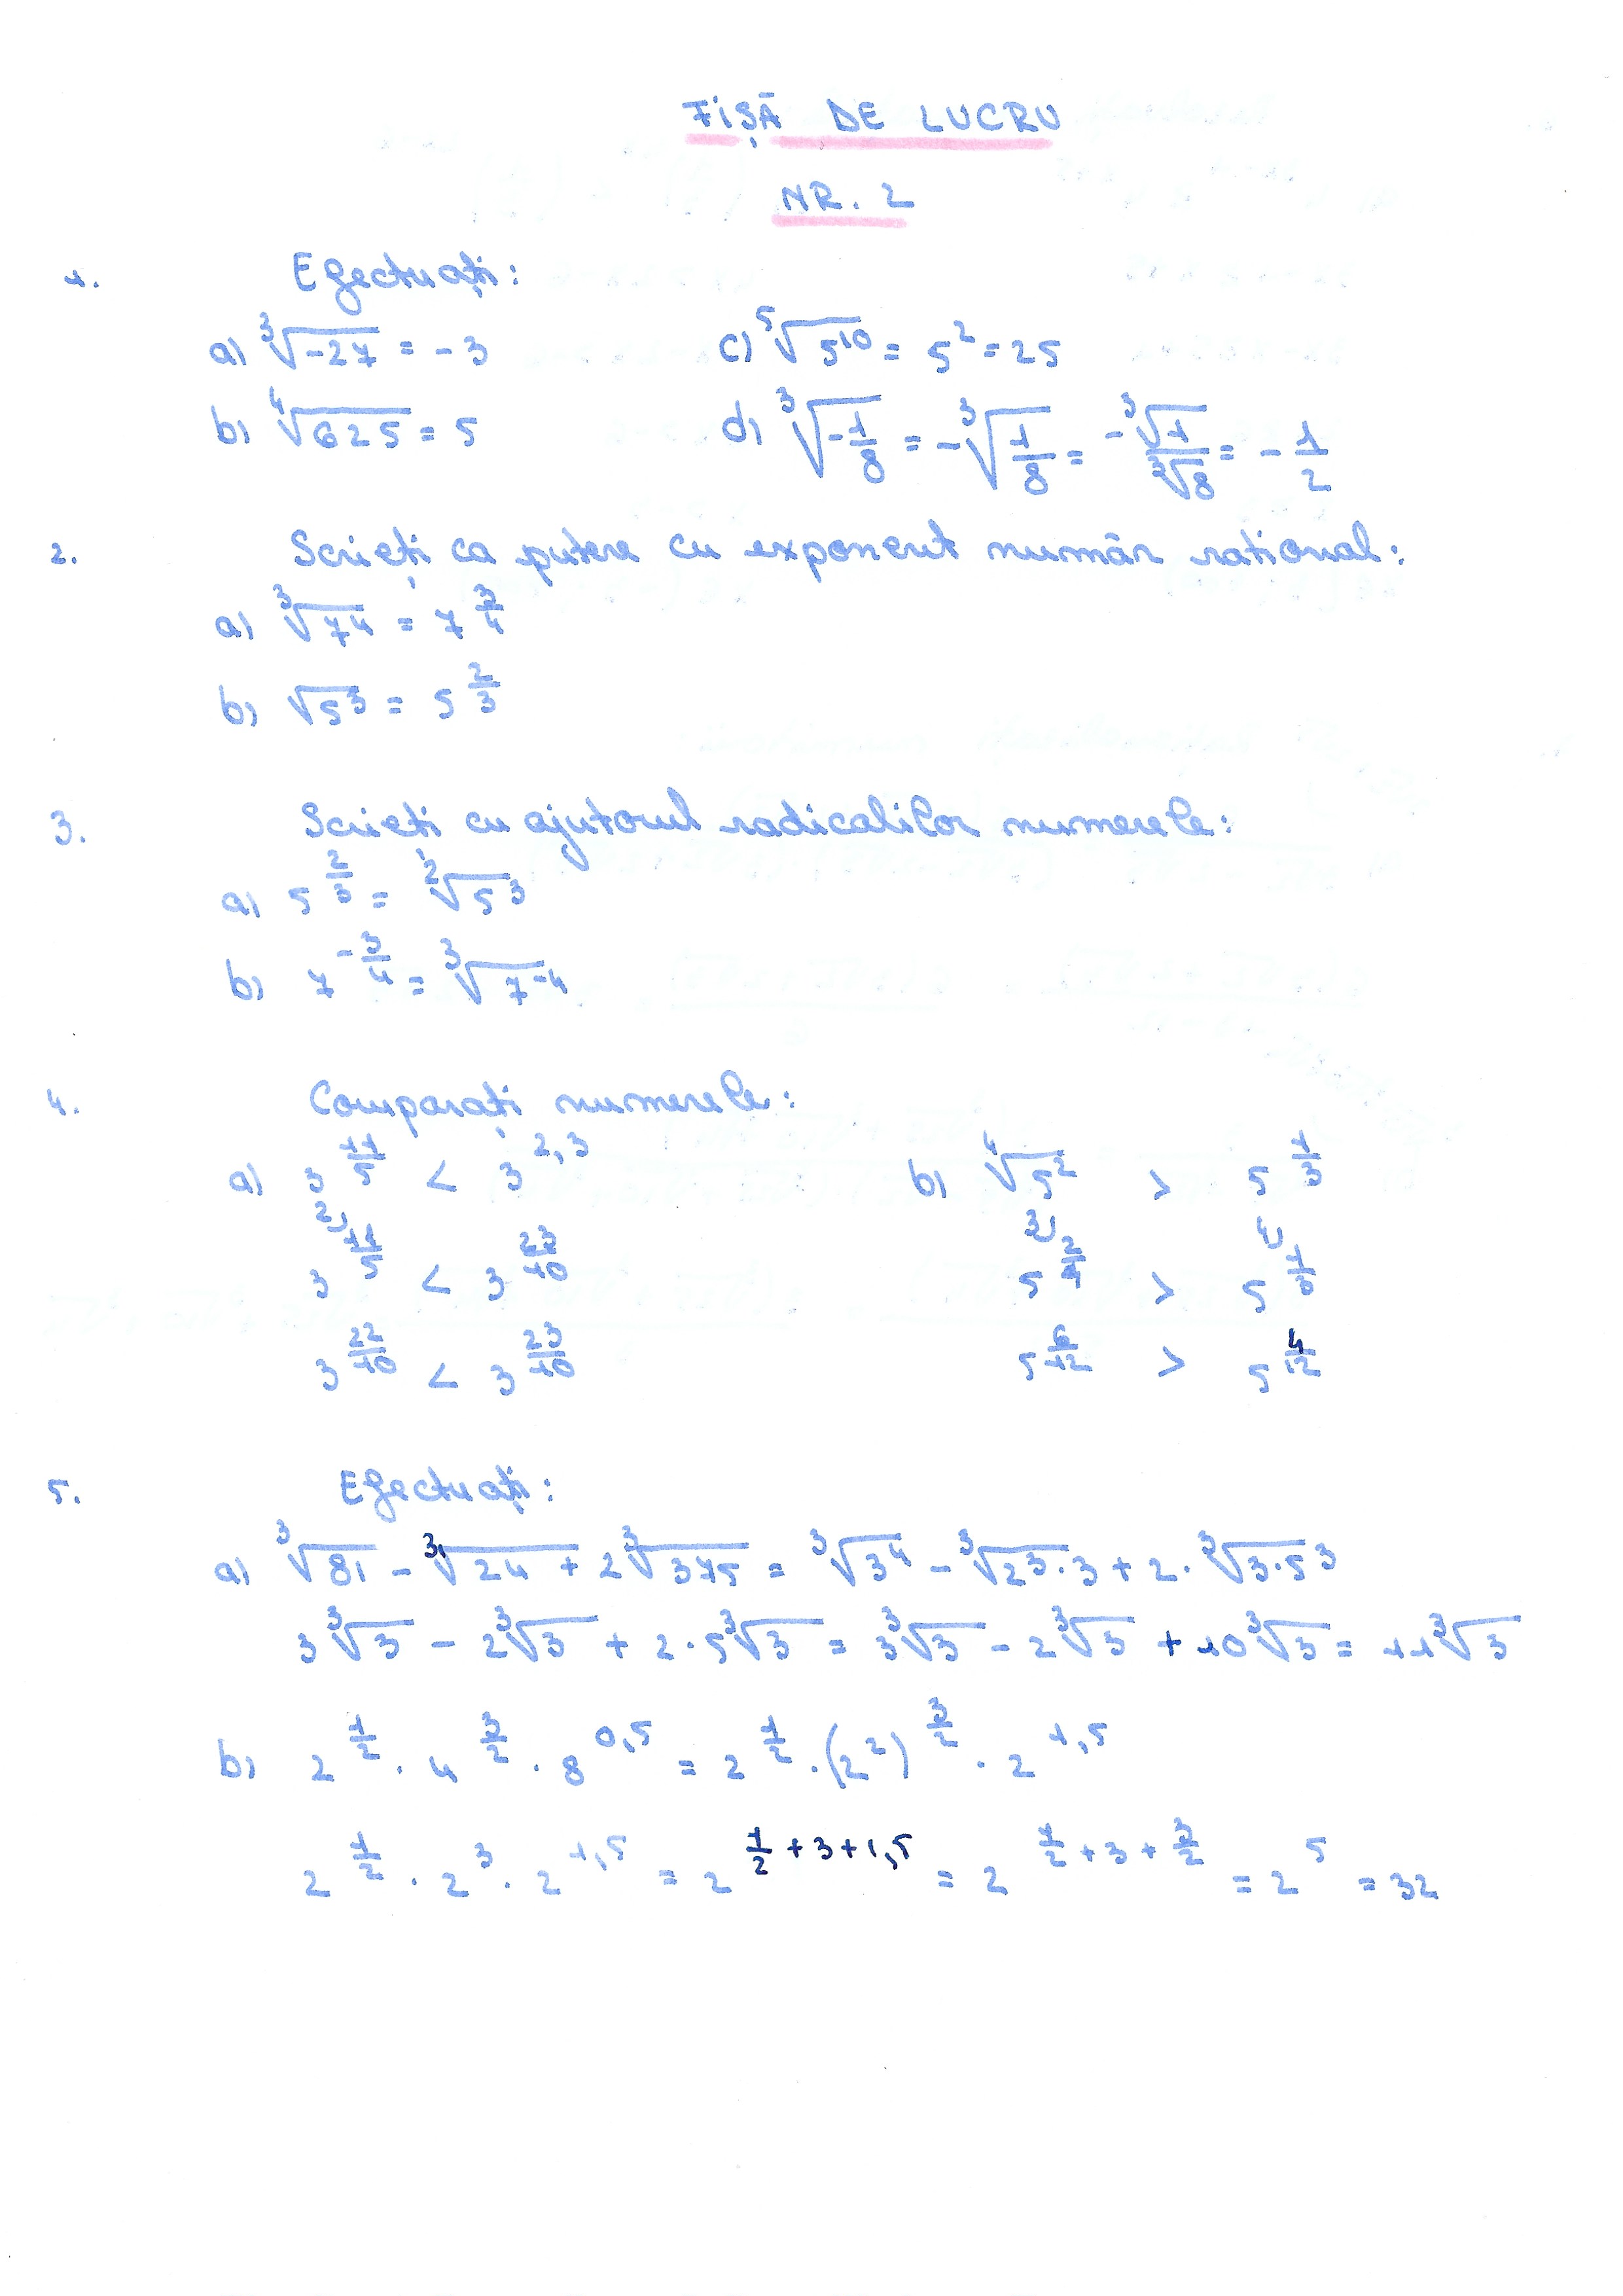 FIȘĂ DE LUCRU
NR. 2
1. Efectuați:
a) ∛(-27) = -3 c) ⁵√(5¹⁰) = 5² = 25
b) ⁴√625 = 5 d) ∛(-1/8) = -∛(1/8) = -∛1/∛8 = -1/2
2. Scrieți ca putere cu exponent număr rational:
a) ∛(7⁴) = 7^(3/4)
b) √(5³) = 5^(2/3)
3. Scrieți cu ajutorul radicalilor numerele:
a) 5^(2/3) = ²√(5³)
b) 7^(-3/4) = ∛(7⁻⁴)
4. Comparați numerele:
a) 3^(11/5) < 3^(2,3) b) ⁴√(5²) > 5^(1/3)
3^(²⁾11/5) < 3^(23/10) 5^(³⁾2/4) > 5^(⁴⁾1/3)
3^(22/10) < 3^(23/10) 5^(6/12) > 5^(4/12)
5. Efectuați:
a) ∛81 - ∛24 + 2∛375 = ∛(3⁴) - ∛(2³·3) + 2·∛(3·5³)
3∛3 - 2∛3 + 2·5∛3 = 3∛3 - 2∛3 + 10∛3 = 11∛3
b) 2^(1/2) · 4^(3/2) · 8^(0,5) = 2^(1/2) · (2²)^(3/2) · 2^(1,5)
2^(1/2) · 2³ · 2^(1,5) = 2^(1/2+3+1,5) = 2^(1/2+3+3/2) = 2⁵ = 32